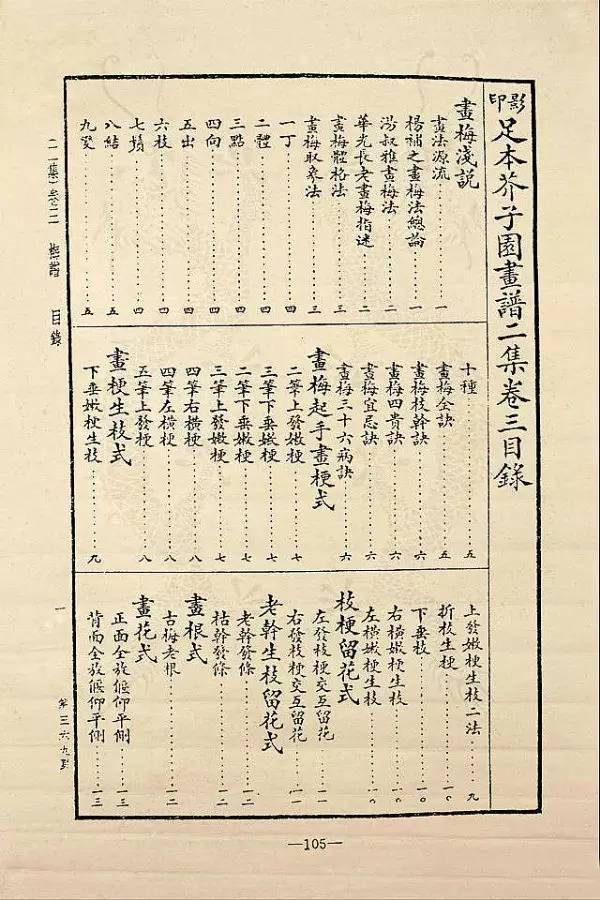 影印足本芥子園畫譜二集卷三目錄
畫梅淺說
畫法源流 一
楊補之畫梅法總論 一
湯叔雅畫梅法 二
華光長老畫梅指迷 二
畫梅體格法 三
畫梅取象法 三
一丁 四
二體 四
三點 四
四向 四
五出 四
六枝 四
七鬚 四
八結 五
九變 五
十種 五
畫梅全訣 五
畫梅枝幹訣 六
畫梅四貴訣 六
畫梅宜忌訣 六
畫梅三十六病訣 六
畫梅起手畫梗式
二筆上發嫩梗 七
三筆下垂嫩梗 七
二筆下垂嫩梗 七
三筆上發嫩梗 七
四筆右橫梗 八
四筆左橫梗 八
五筆上發梗 八
畫梗生枝式
下垂嫩梗生枝 九
上發嫩梗生枝二法 九
折枝生梗 一〇
下垂枝 一〇
右橫嫩梗生枝 一〇
左橫嫩梗生枝 一〇
枝梗留花式
左發枝梗交互留花 一一
右發枝梗交互留花 一一
老幹生枝留花式
老幹發條 一二
枯幹發條 一二
畫根式
古梅老根 一二
畫花式
正面全放偃仰平側 一三
背面全放偃仰平側 一三
二集 卷三 梅譜 目錄
一
第三六九點
—105—